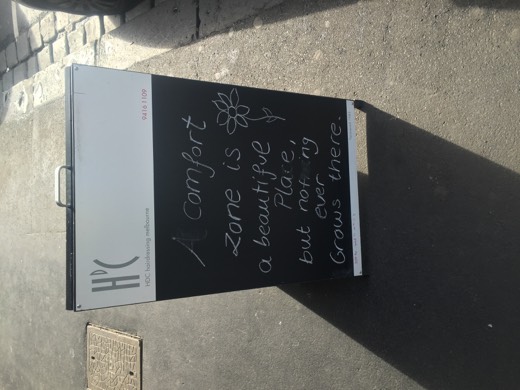 HDC
HDC hairdressing melbourne
94161109
A comfort
zone is
a beautiful
Place,
but nothing
ever
Grows there.